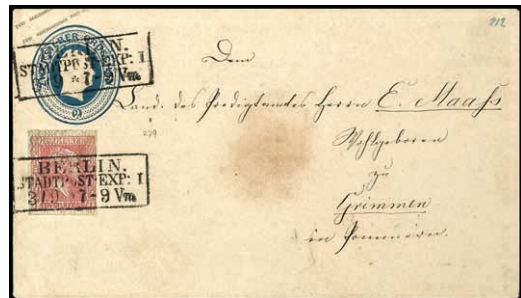 212
BERLIN.
STADTPOST-EXP: I
7-9 Vm
2
BERLIN.
STADTPOST-EXP: I
3/9 7-9 Vm
Dem
Cand. des Predigtamtes Herrn E. Maaß
Wohlgeboren
zu
Grimmen
in Pommern.